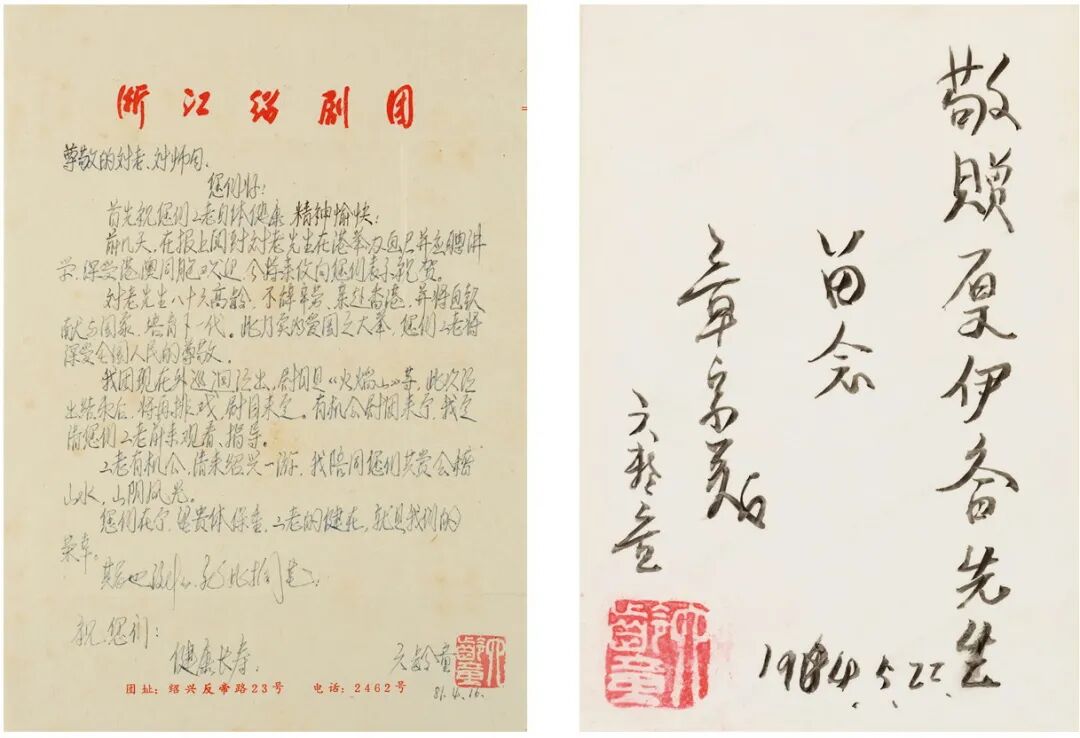 浙江绍剧团
尊敬的刘老、刘师母:
您们好:
首先祝您们二老身体健康 精神愉快!
前几天,在报上阅到刘老先生在港举办画展并应聘讲
学,深受港澳同胞欢迎,今特来信向您们表示祝贺。
刘老先生八十六高龄,不辞辛劳,亲赴香港,并将巨款
献与国家,培育下一代。此乃实为爱国之大举,您们二老将
深受全国人民的尊敬。
我团现在外巡回演出,剧目是《火焰山》等,此次演
出结束后,将再排戏,剧目未定。有机会剧团来宁,我定
请您们二老前来观看、指导。
二老有机会,请来绍兴一游,我陪同您们共赏会稽
山水,山阴风光。
您们在宁,望贵体保重,二老的健在,就是我们的
荣幸。
祝您们:
健康长寿.
六龄童
六龄童
81.4.16.
团址:绍兴反帝路23号 电话:2462号
敬赠夏伊乔先生
留念
章宗义
六龄童
1984.5.22.
六龄童